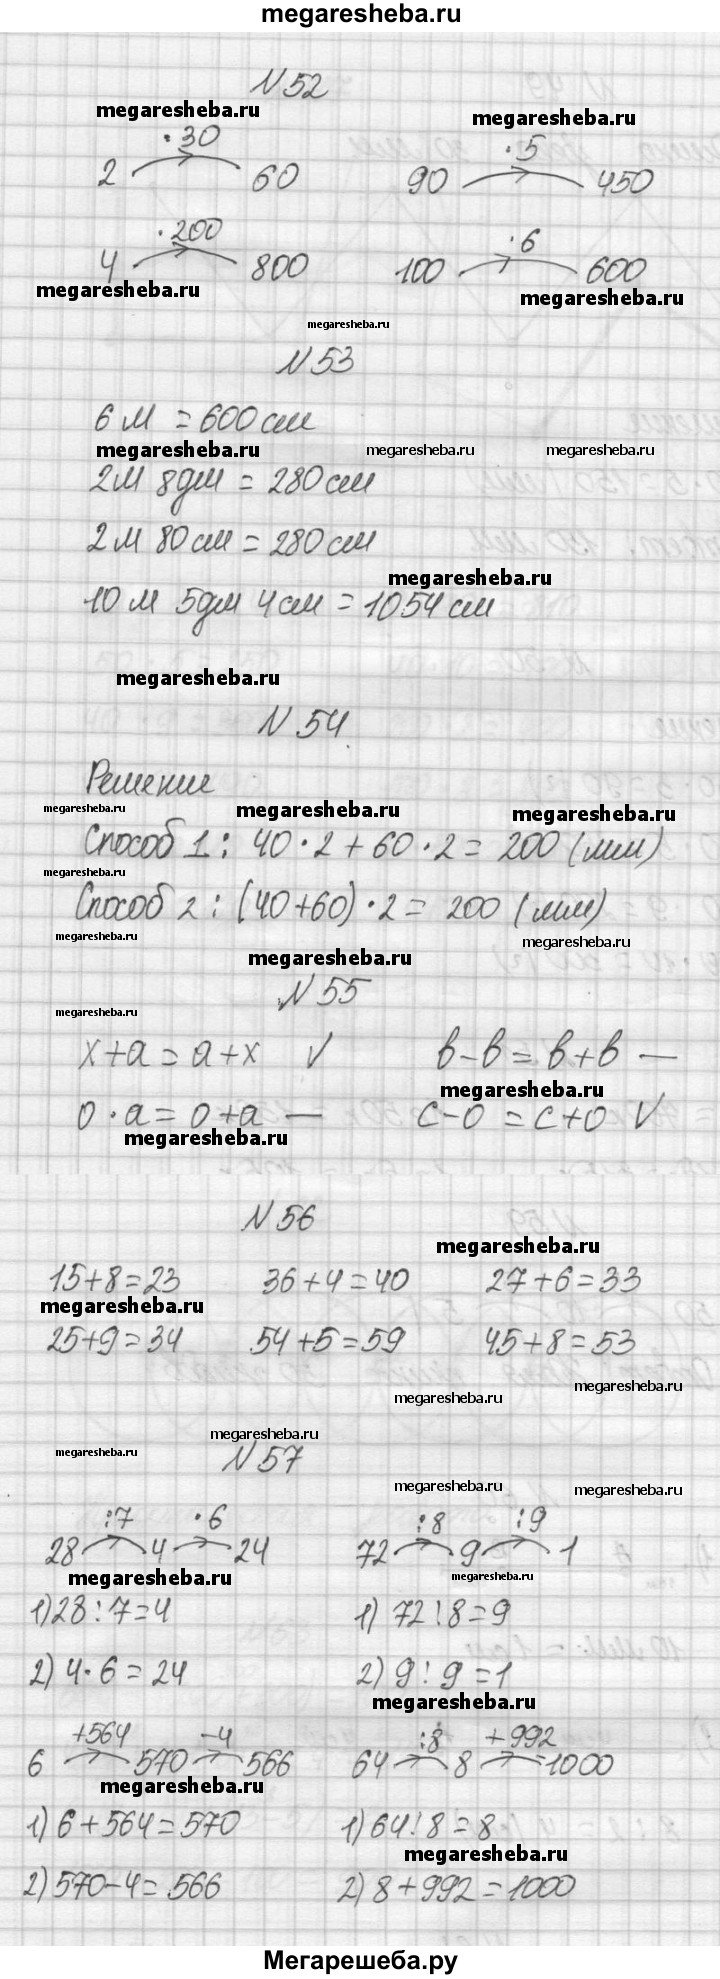 megaresheba.ru
N 52
megaresheba.ru
megaresheba.ru
2 ·30 60 90 ·5 450
4 ·200 800 100 ·6 600
megaresheba.ru
megaresheba.ru
megaresheba.ru
N 53
6 м = 600 см
megaresheba.ru megaresheba.ru megaresheba.ru
2 м 8 дм = 280 см
2 м 80 см = 280 см
megaresheba.ru
10 м 5 дм 4 см = 1054 см
megaresheba.ru
N 54
Решение
megaresheba.ru megaresheba.ru megaresheba.ru
Способ 1: 40 · 2 + 60 · 2 = 200 (мм)
megaresheba.ru
Способ 2: (40+60) · 2 = 200 (мм)
megaresheba.ru megaresheba.ru
megaresheba.ru
N 55
megaresheba.ru
x+a = a+x V в-в = в+в —
megaresheba.ru
0 · a = 0+a — c-0 = c+0 V
megaresheba.ru
N 56
megaresheba.ru
15+8=23 36+4=40 27+6=33
megaresheba.ru
25+9=34 54+5=59 45+8=53
megaresheba.ru megaresheba.ru
megaresheba.ru
megaresheba.ru
N 57
megaresheba.ru megaresheba.ru
28 :7 4 ·6 24 72 :8 9 :9 1
megaresheba.ru megaresheba.ru
1) 28:7=4 1) 72:8=9
2) 4·6=24 2) 9:9=1
megaresheba.ru
6 +564 570 -4 566 64 :8 8 +992 1000
megaresheba.ru
1) 6+564=570 1) 64:8=8
megaresheba.ru
2) 570-4=566 2) 8+992=1000
Мегарешеба.ру